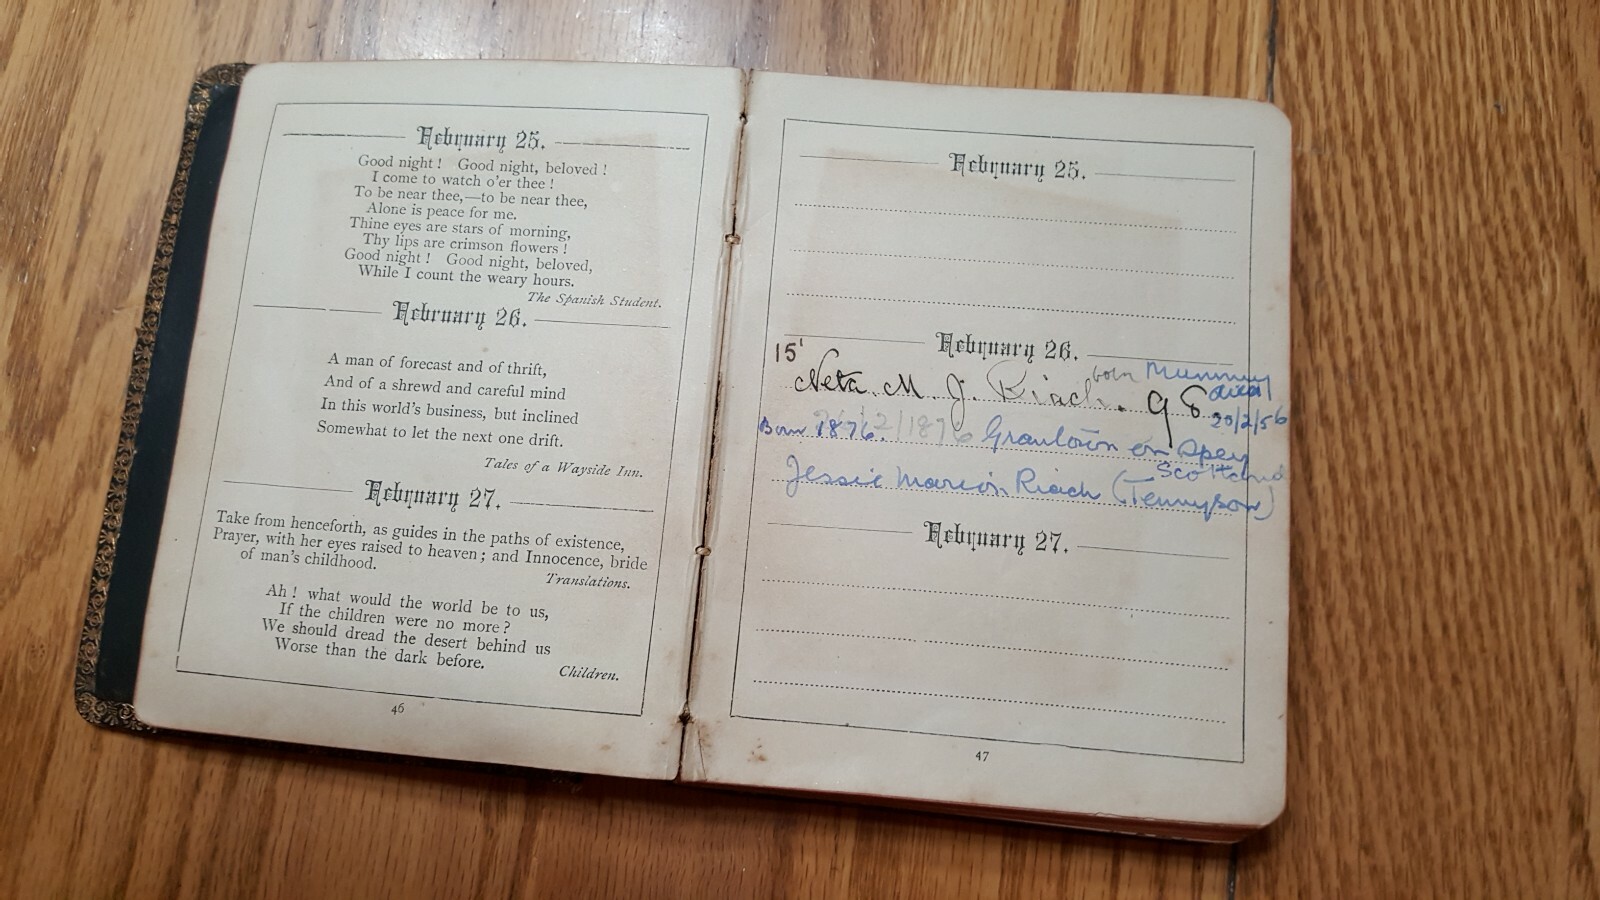 February 25.
Good night! Good night, beloved!
I come to watch o'er thee!
To be near thee,—to be near thee,
Alone is peace for me.
Thine eyes are stars of morning,
Thy lips are crimson flowers!
Good night! Good night, beloved,
While I count the weary hours.
The Spanish Student.
February 26.
A man of forecast and of thrift,
And of a shrewd and careful mind
In this world's business, but inclined
Somewhat to let the next one drift.
Tales of a Wayside Inn.
February 27.
Take from henceforth, as guides in the paths of existence,
Prayer, with her eyes raised to heaven; and Innocence, bride
of man's childhood.
Translations.
Ah! what would the world be to us,
If the children were no more?
We should dread the desert behind us
Worse than the dark before.
Children.
46
February 25.
February 26.
15'
born Mummy
Neta. M. J. Riach.
died
20/2/56
Born 1876. 26/2/1876 Grantown on Spey
Scotland
Jessie Marion Riach (Tennyson)
February 27.
47